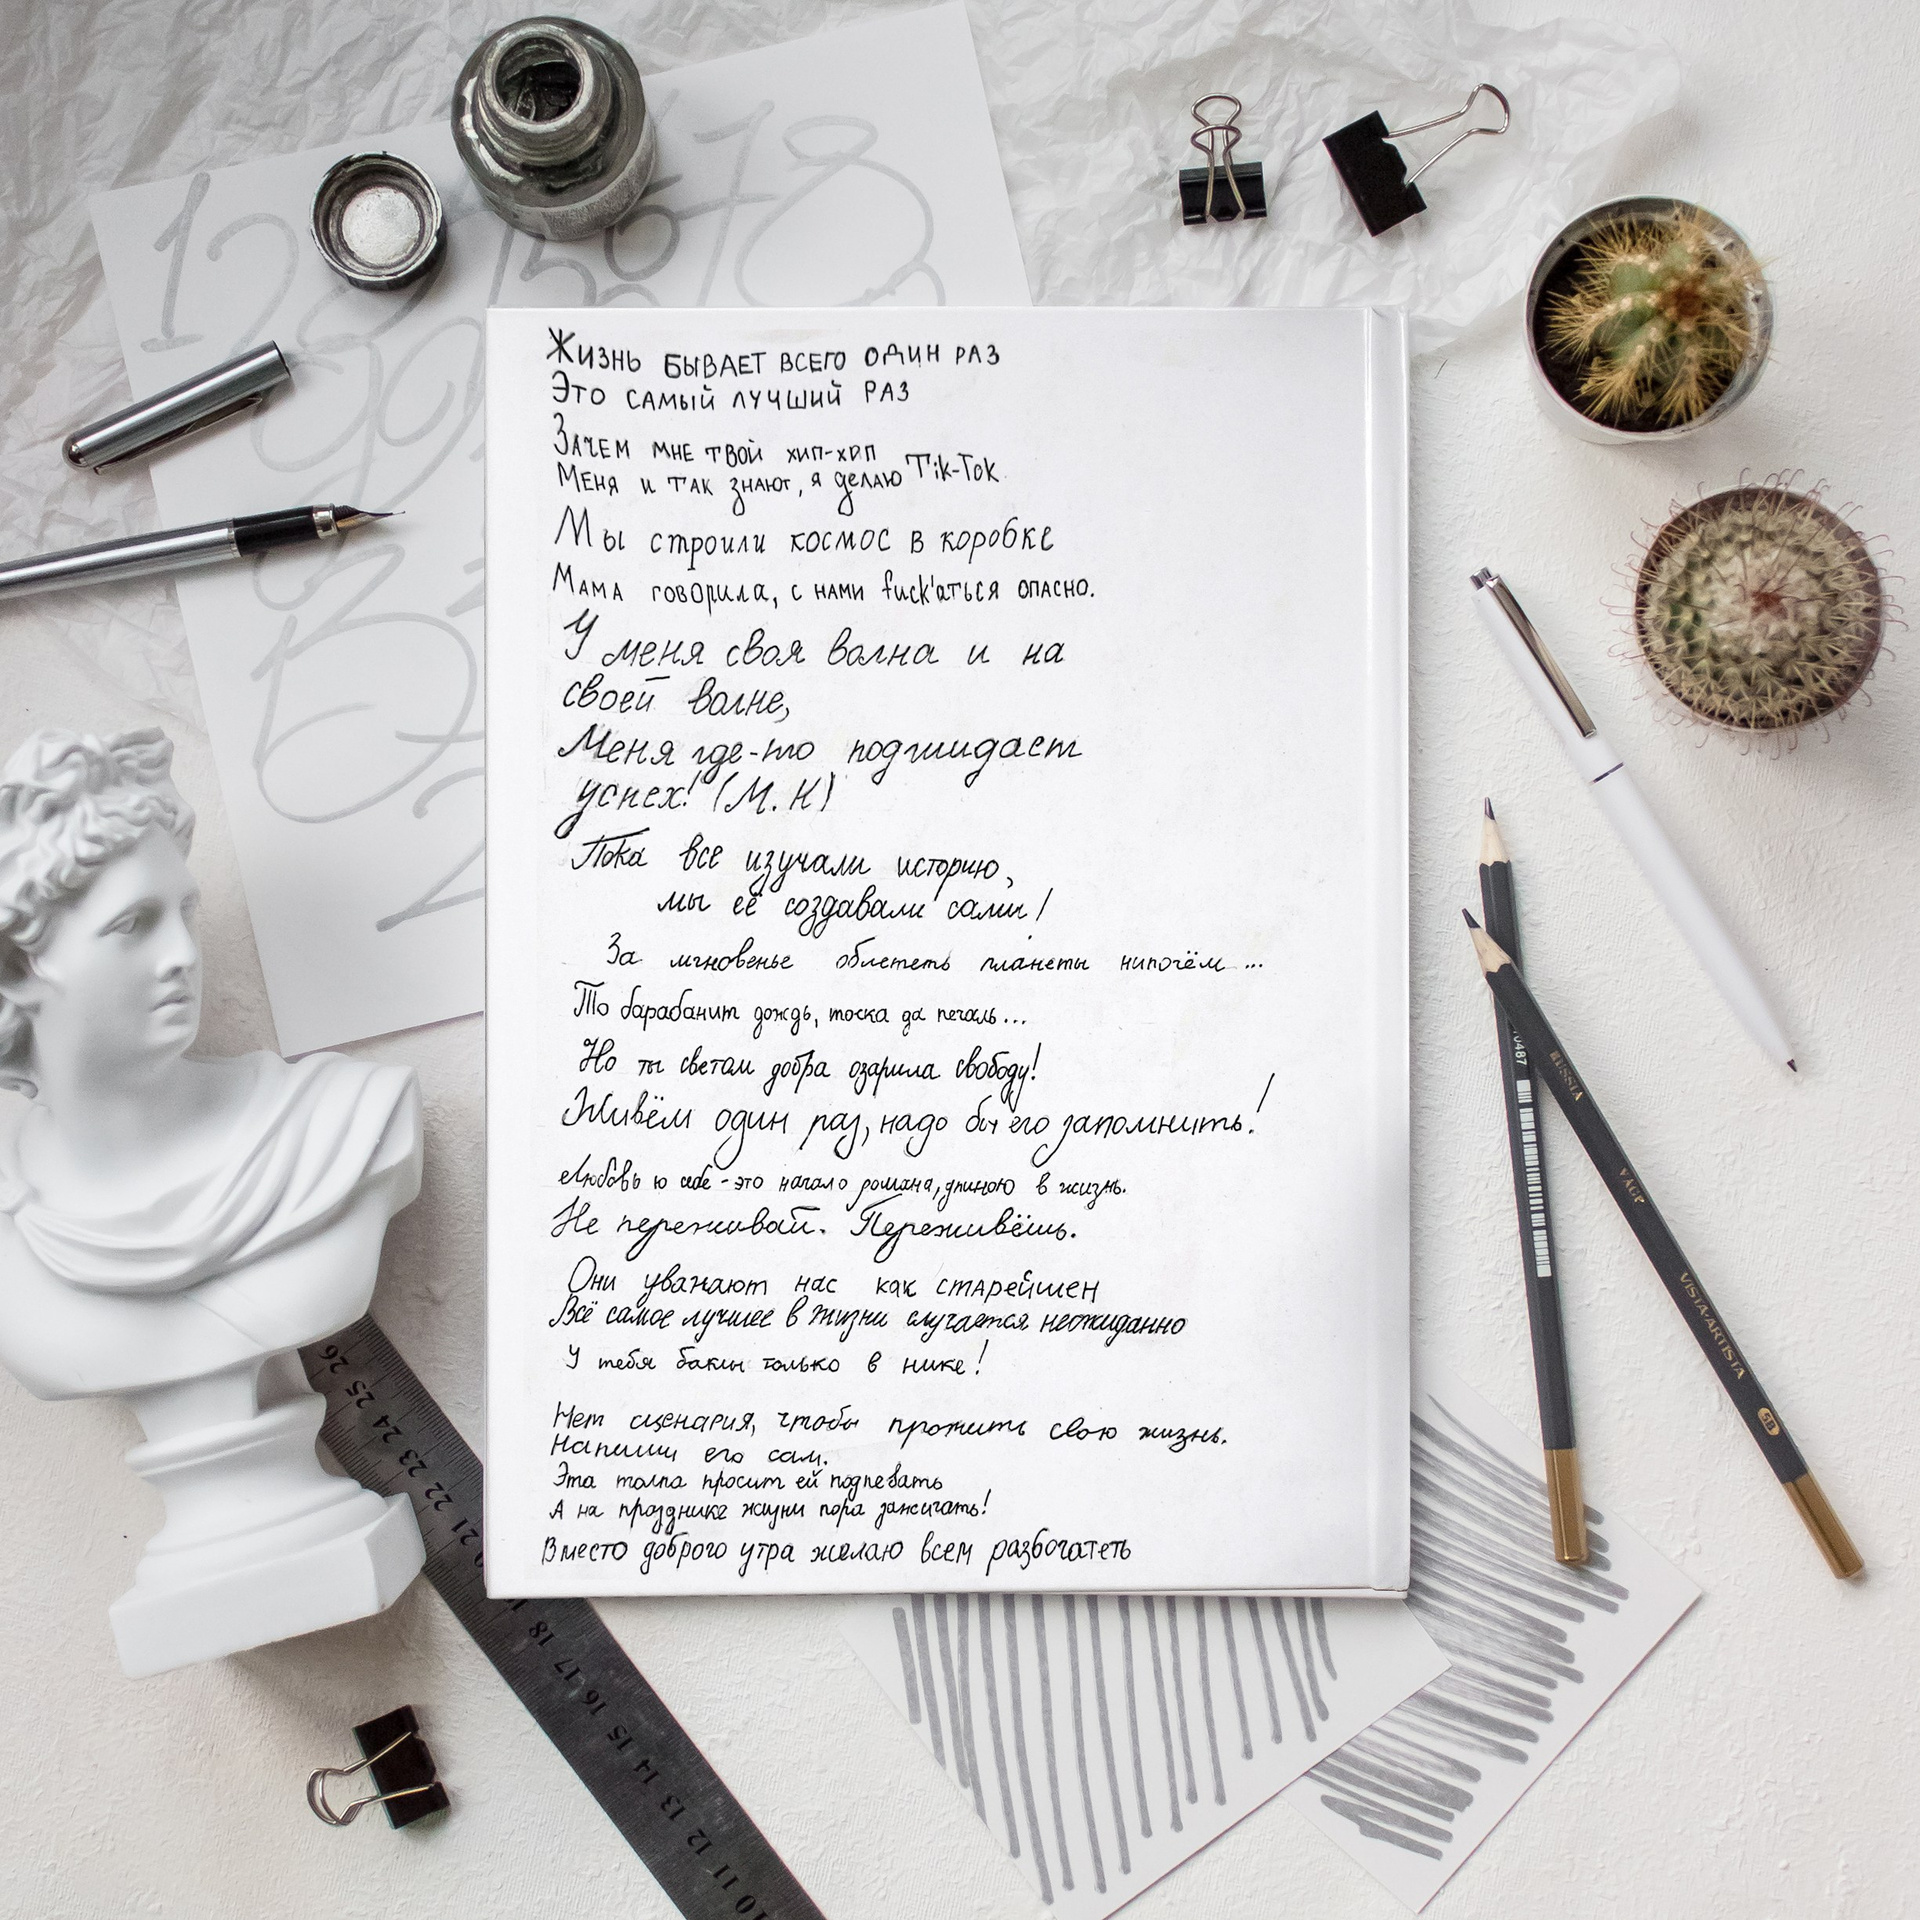 1 2 5 6 7 8
Жизнь бывает всего один раз
Это самый лучший раз
Зачем мне твой хип-хоп
Меня и так знают, я делаю Tik-Tok
Мы строили космос в коробке
Мама говорила, с нами fuck'аться опасно.
У меня своя волна и на
своей волне,
Меня где-то поджидает
успех! (М.К)
Пока все изучали историю,
мы её создавали сами!
За мгновенье облететь планеты нипочём...
То барабанит дождь, тоска да печаль...
Но ты светом добра озарила свободу!
Живём один раз, надо бы его запомнить!
Любовь к себе - это начало романа, длиною в жизнь.
Не переживай. Переживёшь.
Они уважают нас как старейшен
Всё самое лучшее в жизни случается неожиданно
У тебя баксы только в нике!
Нет сценария, чтобы прожить свою жизнь.
Напиши его сам.
Эта толпа просит ей подпевать
А на празднике жизни пора зажигать!
Вместо доброго утра желаю всем разбогатеть
0487
RUSSIA
VISTA-ARTISTA
5B
26 25 24 23 22 21
18 17 16 15 14 13 12 11 10